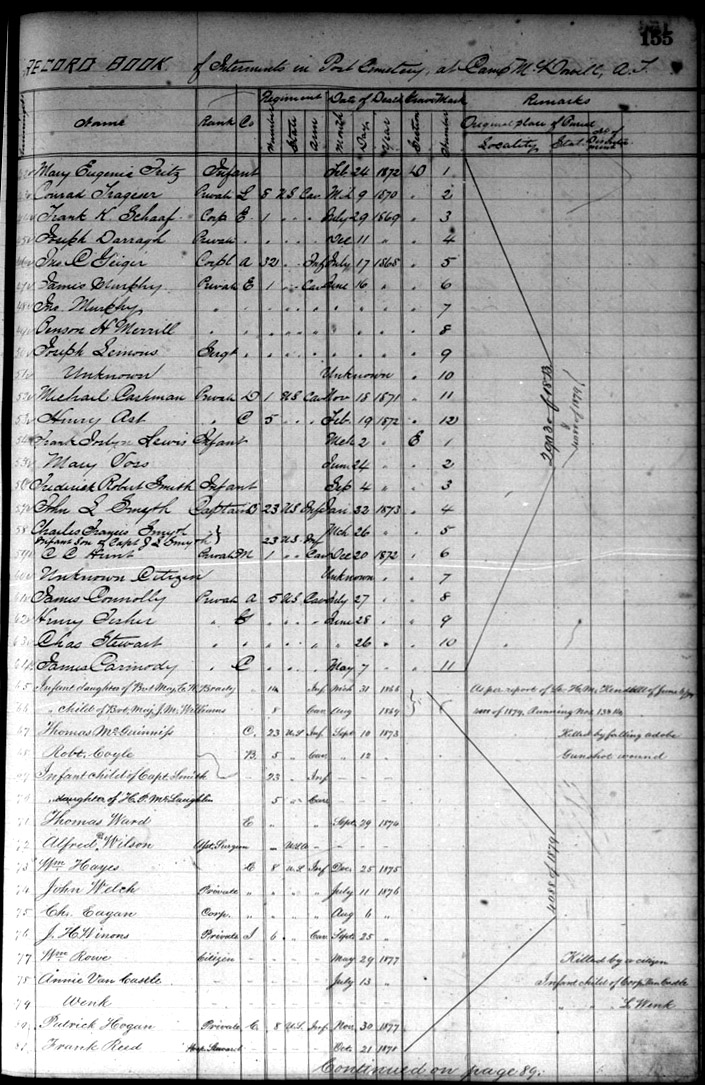 155
RECORD BOOK of Interments in Post Cemetery, at Camp McDowell, A.T.
Regiment Date of Death Grave Mark Remarks
Name Rank Co Number State Arm Month Day Year Section Number Original place of Burial
Locality State
Mary Eugenie Fritz Infant Feb 24 1872 D 1
Conrad Trageser Private L 8 US Cav Mch 9 1870 2
Frank K. Schaaf Corp E 1 " " July 29 1869 3
Joseph Darragh Private " " " " Dec 11 " 4
Jno. C Geiger Corpl A 32 " Inf July 17 1868 5
James Murphy Private E 1 " Cav June 16 " 6
Jno. Murphy " " " " " " " " 7
Penson H Merrill " " " " " " " " 8
Joseph Lemons Sergt " " " " " " " 9
Unknown Unknown 10
Michael Cashman Private D 1 US Cav Nov 18 1871 11
Henry Ast " C 5 " " Feb. 19 1872 12
Frank Joslyn Lewis Infant Mch 2 " E 1
Mary Voss June 24 " 2
Frederick Robert Smith Infant Sep 4 " 3
John L Smyth Captain 23 US Inf Jan 1873 4
58 Charles Francis Smyth Mch 26 " 5
Infant Son of Capt J L Smyth } 23 US Inf
59 C C Hunt Private M 1 " Cav Dec 20 1872 6
60 Unknown Citizen Unknown " 7
61 James Connolly Private A 5 US Cav July 27 " 8
62 Henry Fisher " " " " June 28 " 9
63 Chas Stewart " " " " " " 26 " 10
64 James Carmody " C " " " May 7 " 11
2993 of 1873
4088 of 1879
65 Infant daughter of Bvt Maj. C. W. Brady " 14 Inf Mich 31 1866 As per report of Lt. H. M. Kendall of June
66 " child of Bvt. Maj. J. M. Williams 8 Cav Aug 1869 of 1879, Running Nos.
67 Thomas McGuinniss C. 23 U.S. Inf Sept 10 1873 Killed by falling adobe
68 Robt. Coyle B. 5 " Cav " 12 " Gunshot wound
69 Infant child of Capt. Smith 23 Inf
70 " daughter of H. P. McLaughlin 5 " Cav
71 Thomas Ward E " " " Sept. 29 1874
72 Alfred B. Wilson Asst. Surgeon U.S.A
73 Wm Hayes C 8 U.S. Inf Dec. 25 1875
74 John Welch Private " " " " July 11 1876
75 Chs. Eagan Corp. " " " " Aug 6 "
76 J. H. Winons Private I 6 " Cav Sept. 25 "
77 Wm Rowe Citizen May 29 1877 Killed by a citizen
78 Annie Van Castle July 13 " Infant child of Corp Van Castle
79 Wenk " " " L. Wenk
80 Patrick Hogan Private C. 8 U.S. Inf Nov. 30 1877
81 Frank Reed Hosp. Steward Oct. 21 1878
4088 of 1879
Continued on page 89.